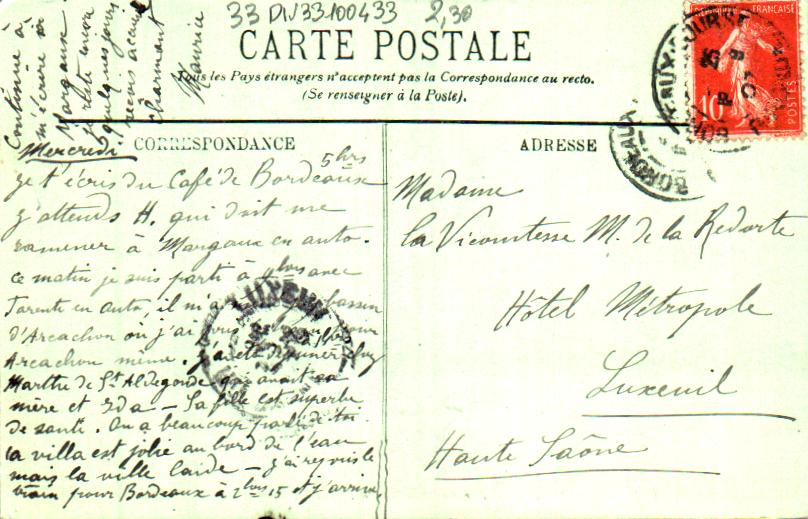 33 DIV33-100433 2,30
CARTE POSTALE
Tous les Pays étrangers n'acceptent pas la Correspondance au recto.
(Se renseigner à la Poste).
CORRESPONDANCE
ADRESSE
Mercredi 5 hrs
Je t'écris du Café de Bordeaux
j'attends H. qui doit me
ramener à Margaux en auto.
Ce matin je suis parti à hres avec
en auto, il m'a bassin
d'Arcachon où j'ai pour
Arcachon même. J'ai été déjeuner chez
Marthe de St Aldegonde qui avait sa
mère et Ida – Sa fille est superbe
de santé. On a beaucoup parlé de toi
la villa est jolie au bord de l'eau
mais la ville laide – j'ai repris le
train pour Bordeaux à 2 hres 15 et j'arrive.
Continue à
m'écrire à
Margaux
je reste encore
quelques jours
accueil
charmant
Maurice
Madame
La Vicomtesse M. de la Redorte
Hôtel Métropole
Luxeuil
Haute Saône
FRANÇAISE
10
POSTES
BORDEAUX
LUXEUIL